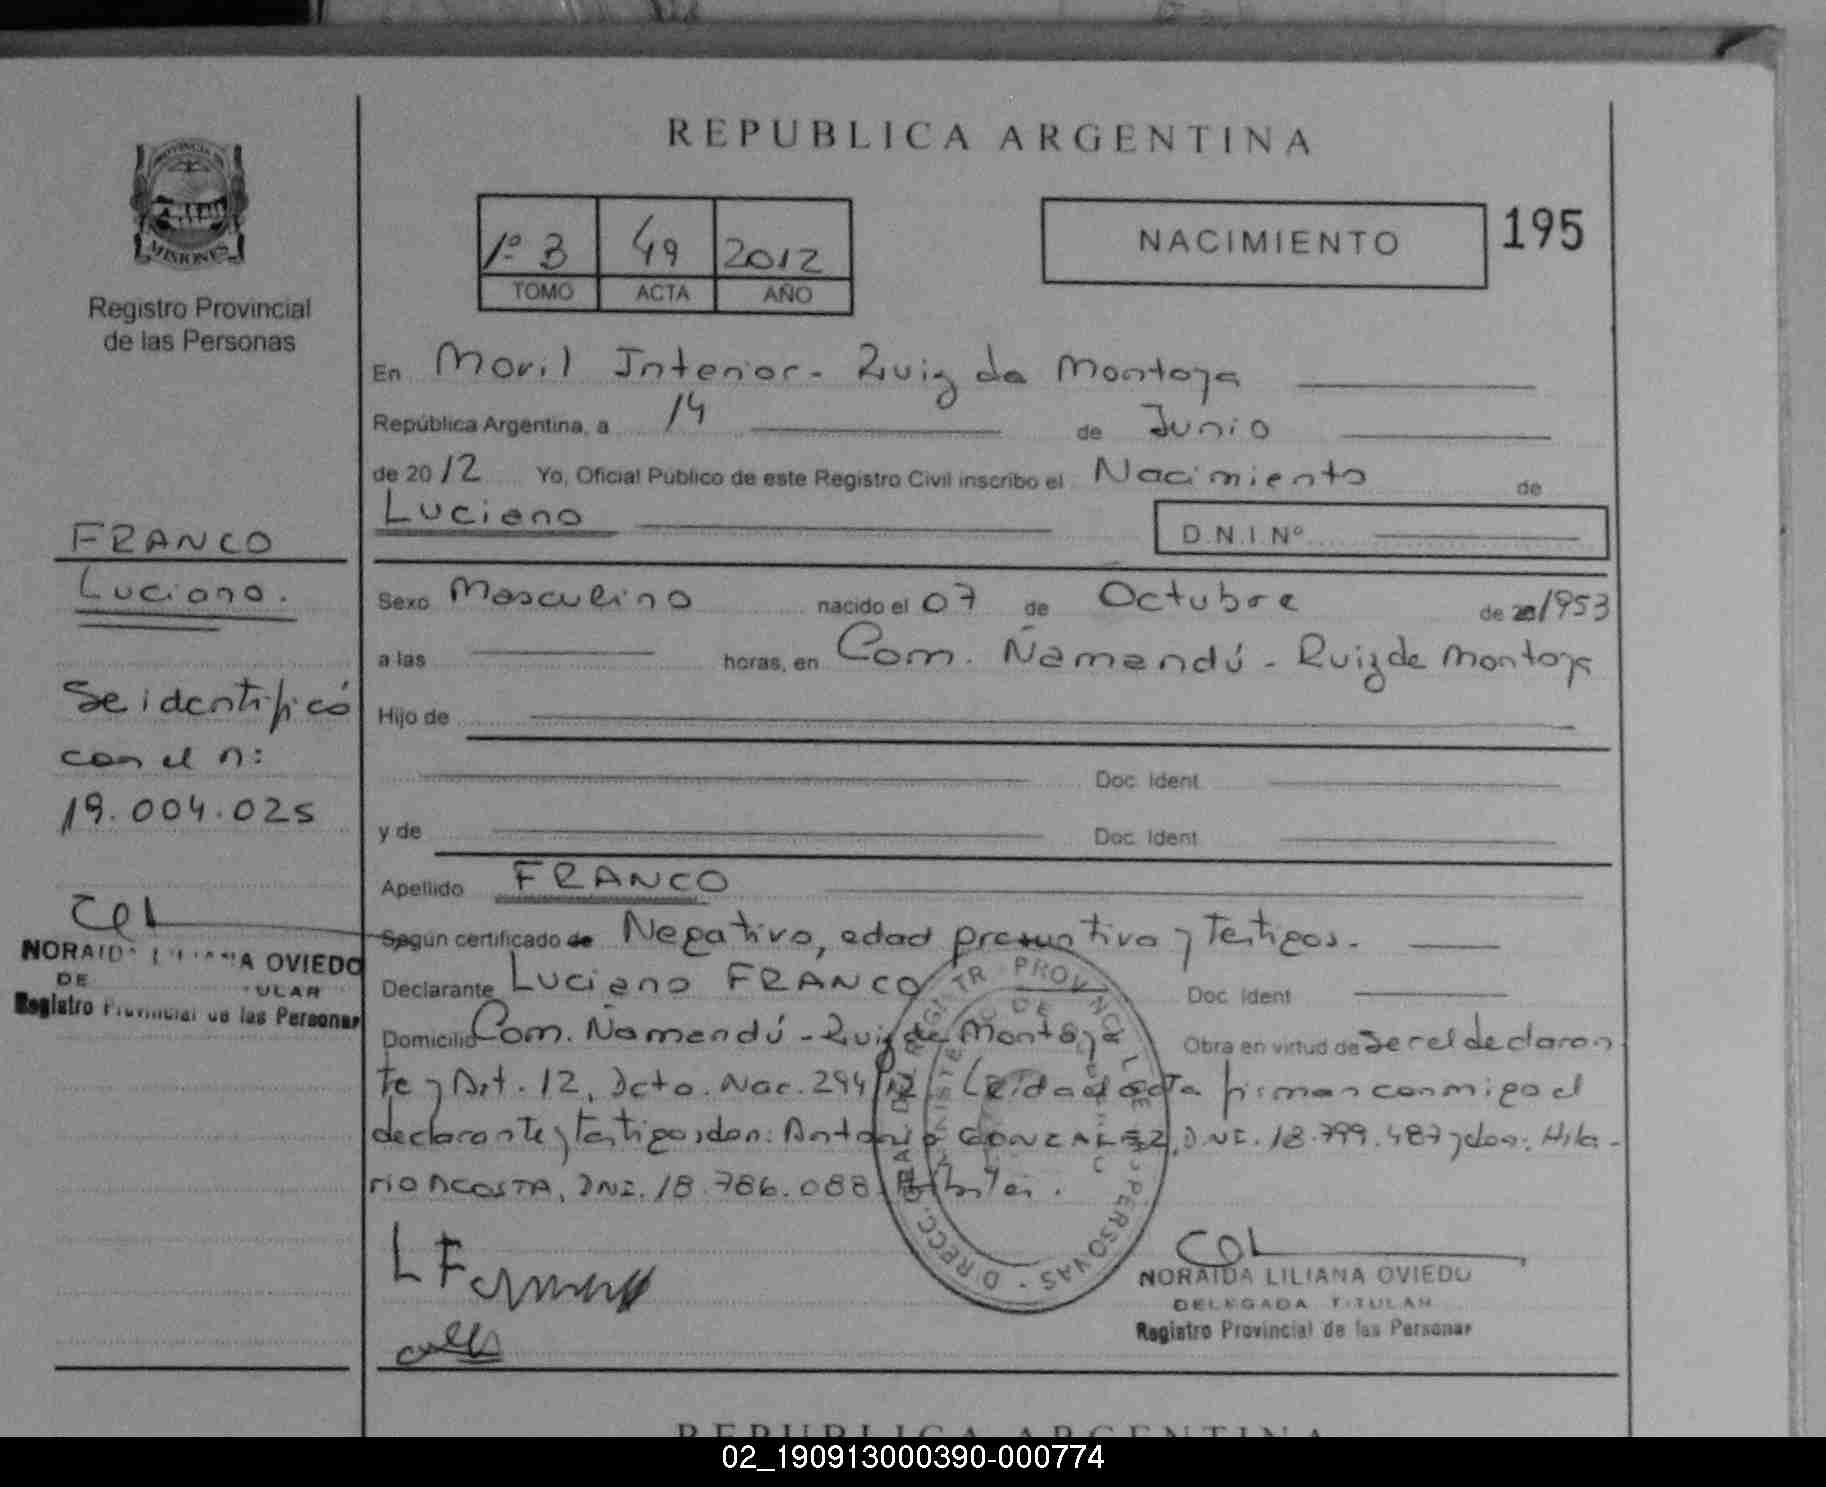 REPUBLICA ARGENTINA
PROVINCIA DE
MISIONES
Registro Provincial
de las Personas
1º B 49 2012
TOMO ACTA AÑO
NACIMIENTO
195
En Movil Interior - Ruiz de Montoya
República Argentina, a 14 de Junio
de 2012 Yo, Oficial Público de este Registro Civil inscribo el Nacimiento de
Luciano
D.N.I.Nº
FRANCO
Luciano.
Se identificó
con el n:
19.004.025
NORAIDA LILIANA OVIEDO
DE ULAR
Registro Provincial de las Personas
Sexo Masculino nacido el 07 de Octubre de 20/953
a las horas, en Com. Ñamandú - Ruiz de Montoya
Hijo de
Doc. Ident.
y de Doc. Ident.
Apellido FRANCO
Según certificado de Negativo, edad presuntiva y Testigos.-
Declarante Luciano FRANCO Doc. Ident.
Domicilio Com. Ñamandú - Ruiz de Montoya Obra en virtud de Ser el declaran
te y Art. 12, Dcto. Nac. 294/12 Leida el acta firman conmigo el
declarante y testigos don: Antonio GONZALEZ, DNI. 18.799.487 y don: Hila-
rio ACOSTA, DNI. 18.786.088.
LF
NORAIDA LILIANA OVIEDO
DELEGADA TITULAR
Registro Provincial de las Personas
REPUBLICA ARGENTINA
02_190913000390-000774